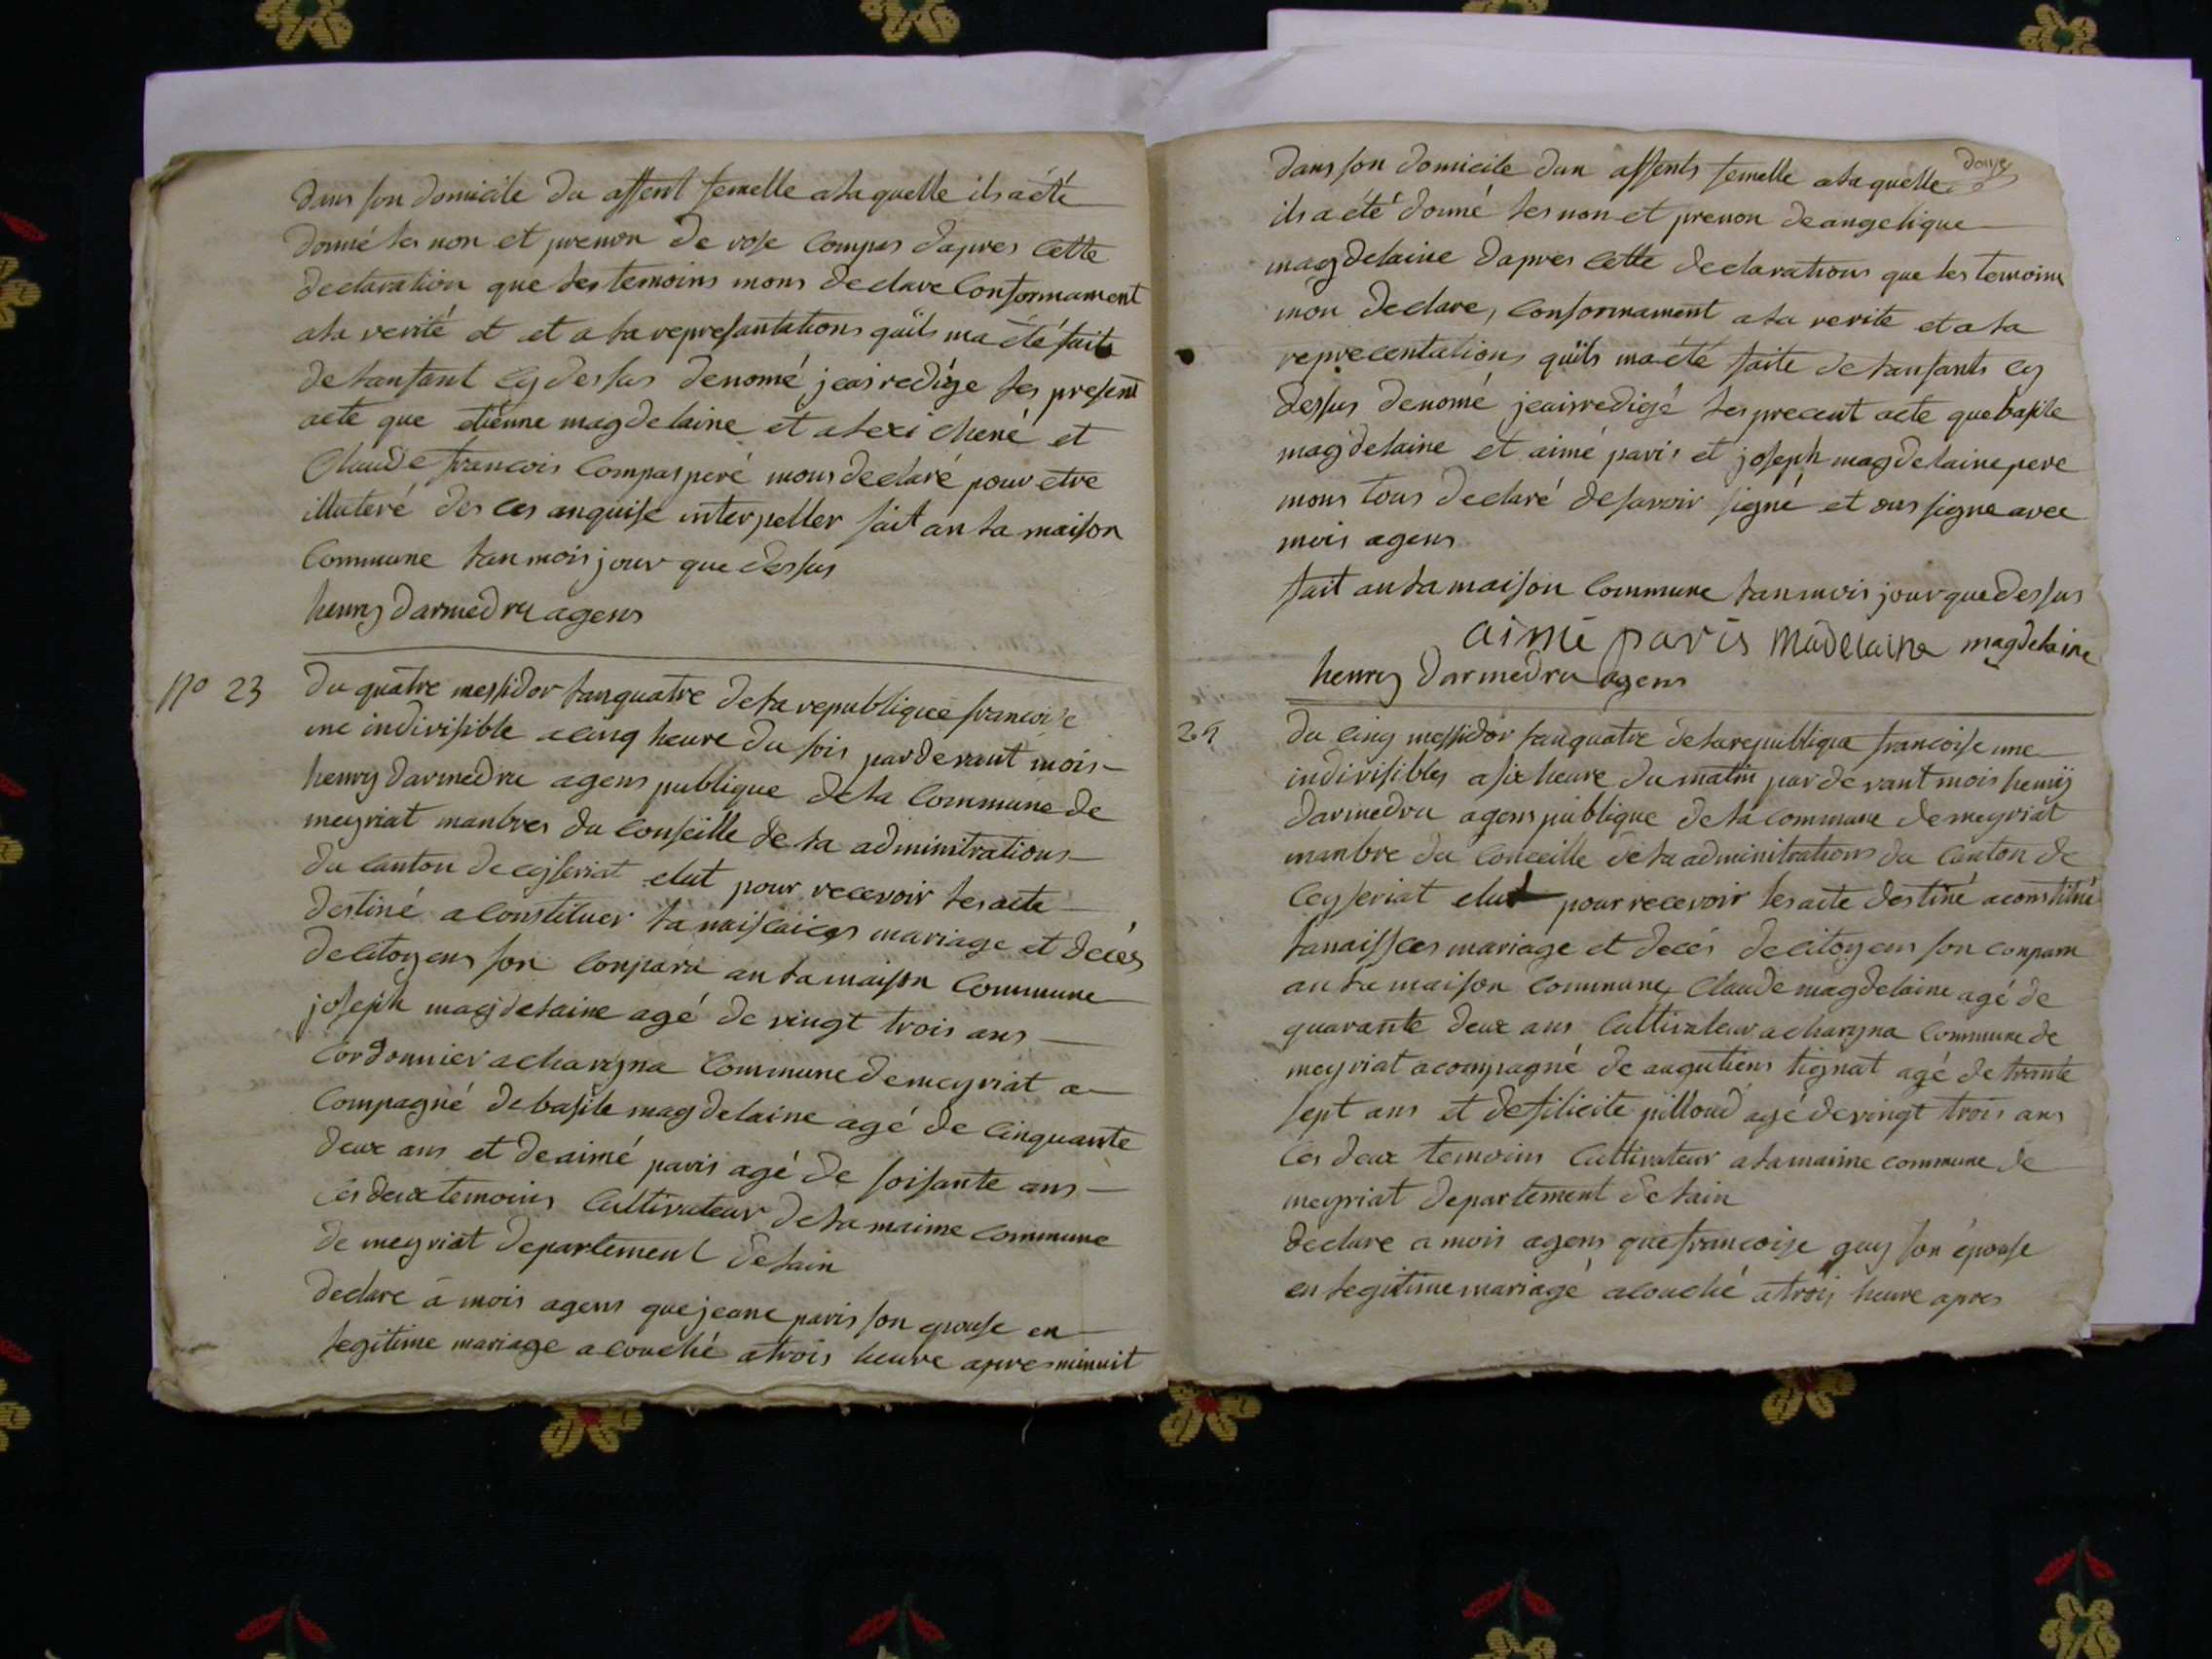 dans son domicile du assent femelle a la quelle ils a été
donné les non et prenon de rose Compas dapres Cette
declaration que les temoins mons declare Conformament
a la verité et et a la represantations quils ma été faite
de lansant cy dessus denomé jeais redige les present
acte que etienne magdelaine et alexi chené et
Claude francois Compas peré mons declaré pour etre
illuteré des ces anquise interpeller fait an la maison
Commune lan mois jour que dessus
henry darmedru agens
No 23
du quatre messidor lan quatre de la republique francoise
une indivisible a cinq heure du sois par devant mois
henry darmedru agens publique de la Commune de
meyriat manbres du Conseille de la adminitrations
du canton de ceyseriat elut pour recevoir les acte
destiné a Constituer la naiscaices mariage et decés
de citoyens son Conparu an la maison Commune
joseph magdelaine agé de vingt trois ans
Cordonnier a charigna Commune de meyriat a
Compagné de basile magdelaine agé de Cinquante
deux ans et de aimé paris agé de soisante ans
Ces deux temoins Cultivateur de la maime Commune
de meyriat departement de lain
declare a mois agens que jeane paris son epouse en
legitime mariage a couché a trois heure apres minuit
douze
dans son domicile dun assents femelle a la quelle
ils a été donné les non et prenon de angelique
magdelaine dapres Cette declarations que les temoins
mon declare, Conformament a la verite et a la
reprecentations quils ma été faite de lansants cy
dessus denomé jeais redigé les precent acte que basile
magdelaine et aimé paris et joseph magdelaine pere
mons tous declaré de savoir signé et ons signe avec
mois agens
fait an la maison Commune lan mois jour que dessus
aimé paris madelaine magdelaine
henry darmedru agens
24
du cinq messidor lan quatre de la republique francoise une
indivisibles a six heure du matin par devant mois henry
darmedru agens publique de la Commune de meyriat
manbre du Conceille de la adminitrations du Canton de
Ceyseriat elut pour recevoir les acte destiné a constitué
la naissces mariage et decés de citoyens son conparu
an la maison Commune Claude magdelaine agé de
quarante deux ans Cultivateur a charigna Commune de
meyriat acompagné de augutiens tignat agé de trante
sept ans et de filicite pilloud agé de vingt trois ans
Ces deux temoins Cultivateur a la maime commune de
meyriat departement de lain
declare a mois agens que francoise guy son épouse
en legitime mariagé a couché a trois heure apres